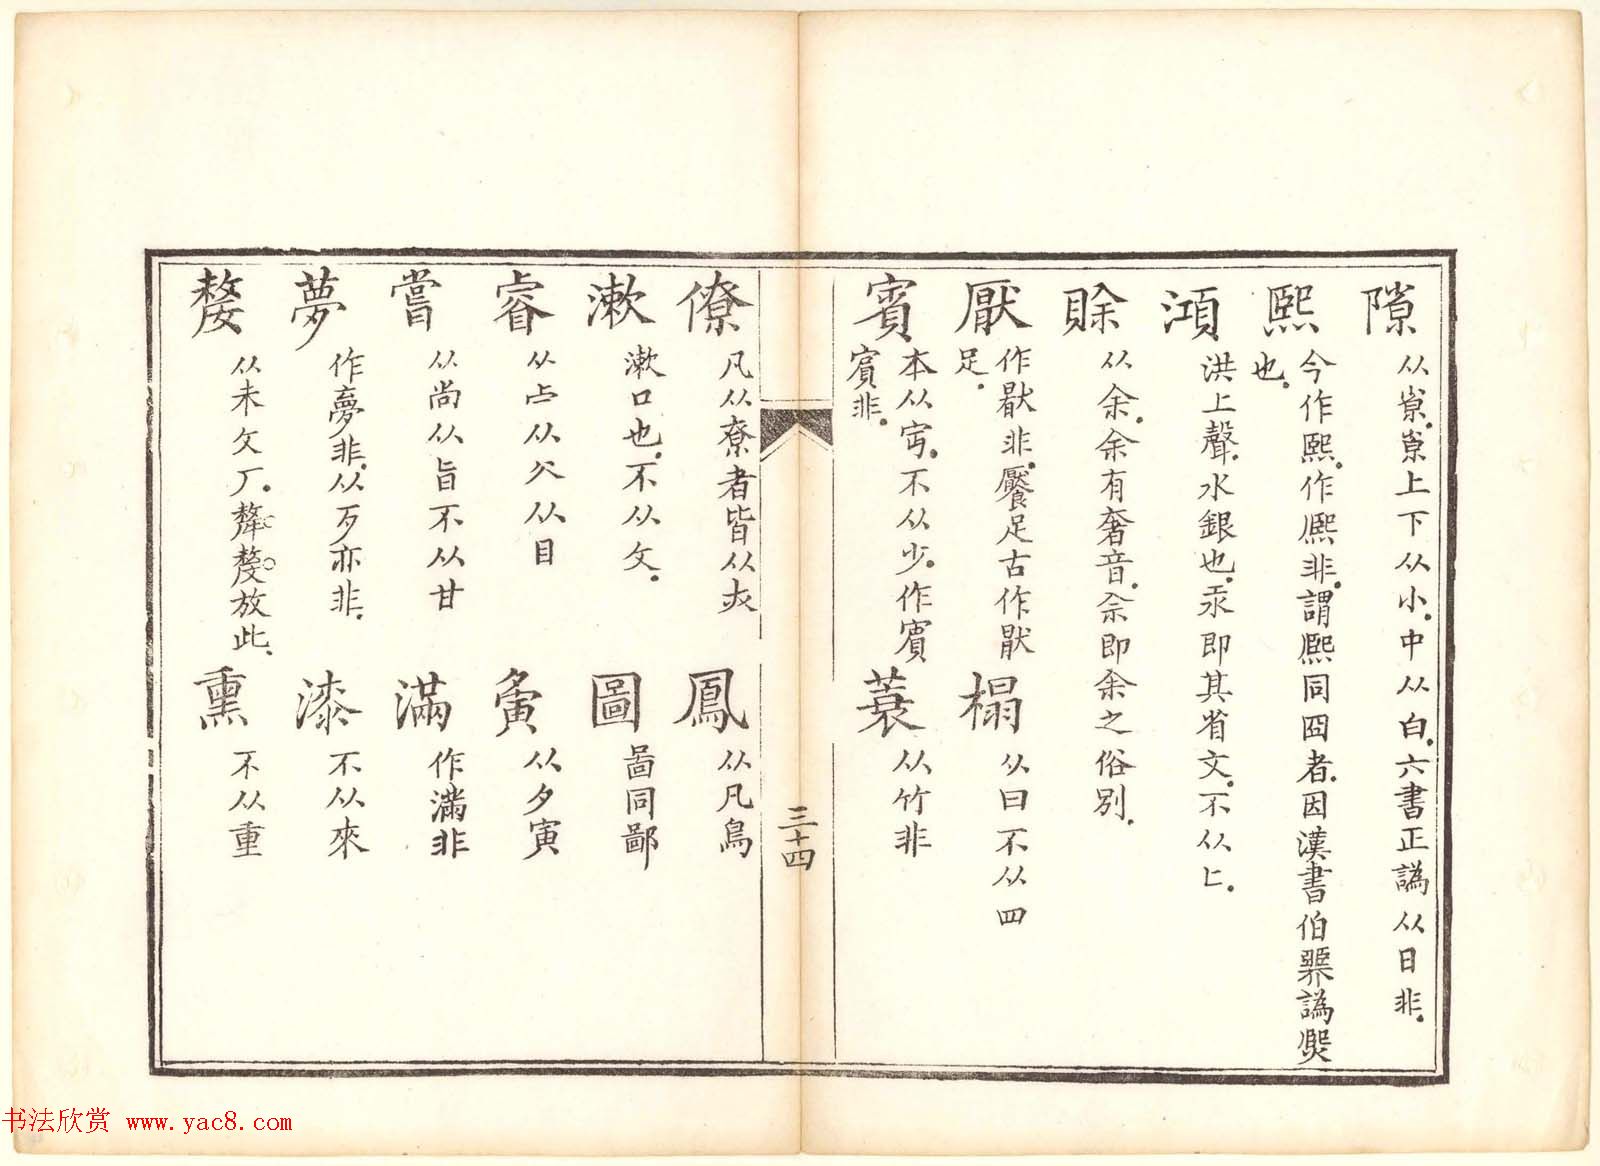 隙 从𡭴.𡭴上下从小.中从白.六書正譌从日非.
熙 今作熈.作熙非.謂熈同囧者.因漢書伯煛譌煚
也.
澒 洪上聲.水銀也.汞即其省文.不从匕.
賖 从余.余有奢音.佘即余之俗別.
厭 作猒非.饜足古作猒
足.
榻 从曰不从四
賓 本从宀丏.不从少.作賔
賔非.
蓑 从竹非
僚 凡从尞者皆从火
鳳 从凡鳥
漱 漱口也.不从攵.
圖 啚同鄙
睿 从𣦵从㕣从目
夤 从夕寅
嘗 从尚从旨不从甘
滿 作滿非
夢 作夢非.从歹亦非.
漆 不从來
嫠 从未攵厂.犛氂放此.
熏 不从重
三十四
书法欣赏 www.yac8.com